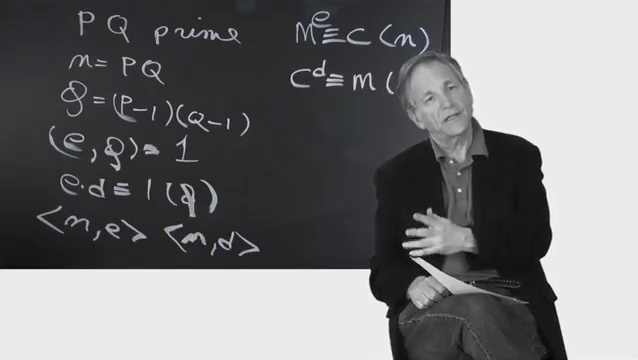 P Q prime
n = PQ
φ = (P-1)(Q-1)
(e, φ) = 1
e·d ≡ 1 (φ)
<n, e> <n, d>
M^e ≡ C (n)
C^d ≡ M (